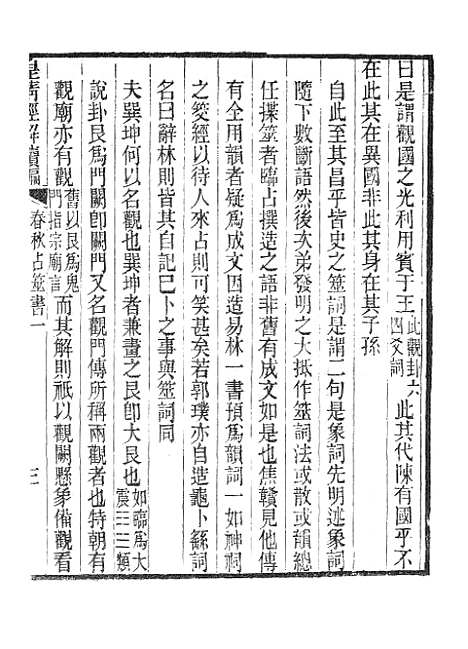 曰是謂觀國之光利用賓于王此觀卦六四爻詞此其代陳有國乎不
在此其在異國非此其身在其子孫
自此至其昌乎皆史之筮詞是謂二句是彖詞先明述彖詞
隨下數斷語然後次弟發明之大抵作筮詞法或散或韻總
任揲筮者臨占撰造之語非舊有成文如是也焦贛見他傳
有全用韻者疑爲成文因造易林一書預爲韻詞一如神祠
之筊經以待人來占則可笑甚矣若郭璞亦自造龜卜繇詞
名曰辭林則皆其自記已卜之事與筮詞同
夫巽坤何以名觀也巽坤者兼畫之艮卽大艮也如臨爲大震三三類
說卦艮爲門闕卽闕門又名觀門傳所稱兩觀者也特朝有
觀廟亦有觀舊以艮爲鬼門指宗廟言而其解則祇以觀闕懸象備觀看
皇淸經解續編 春秋占筮書一 三